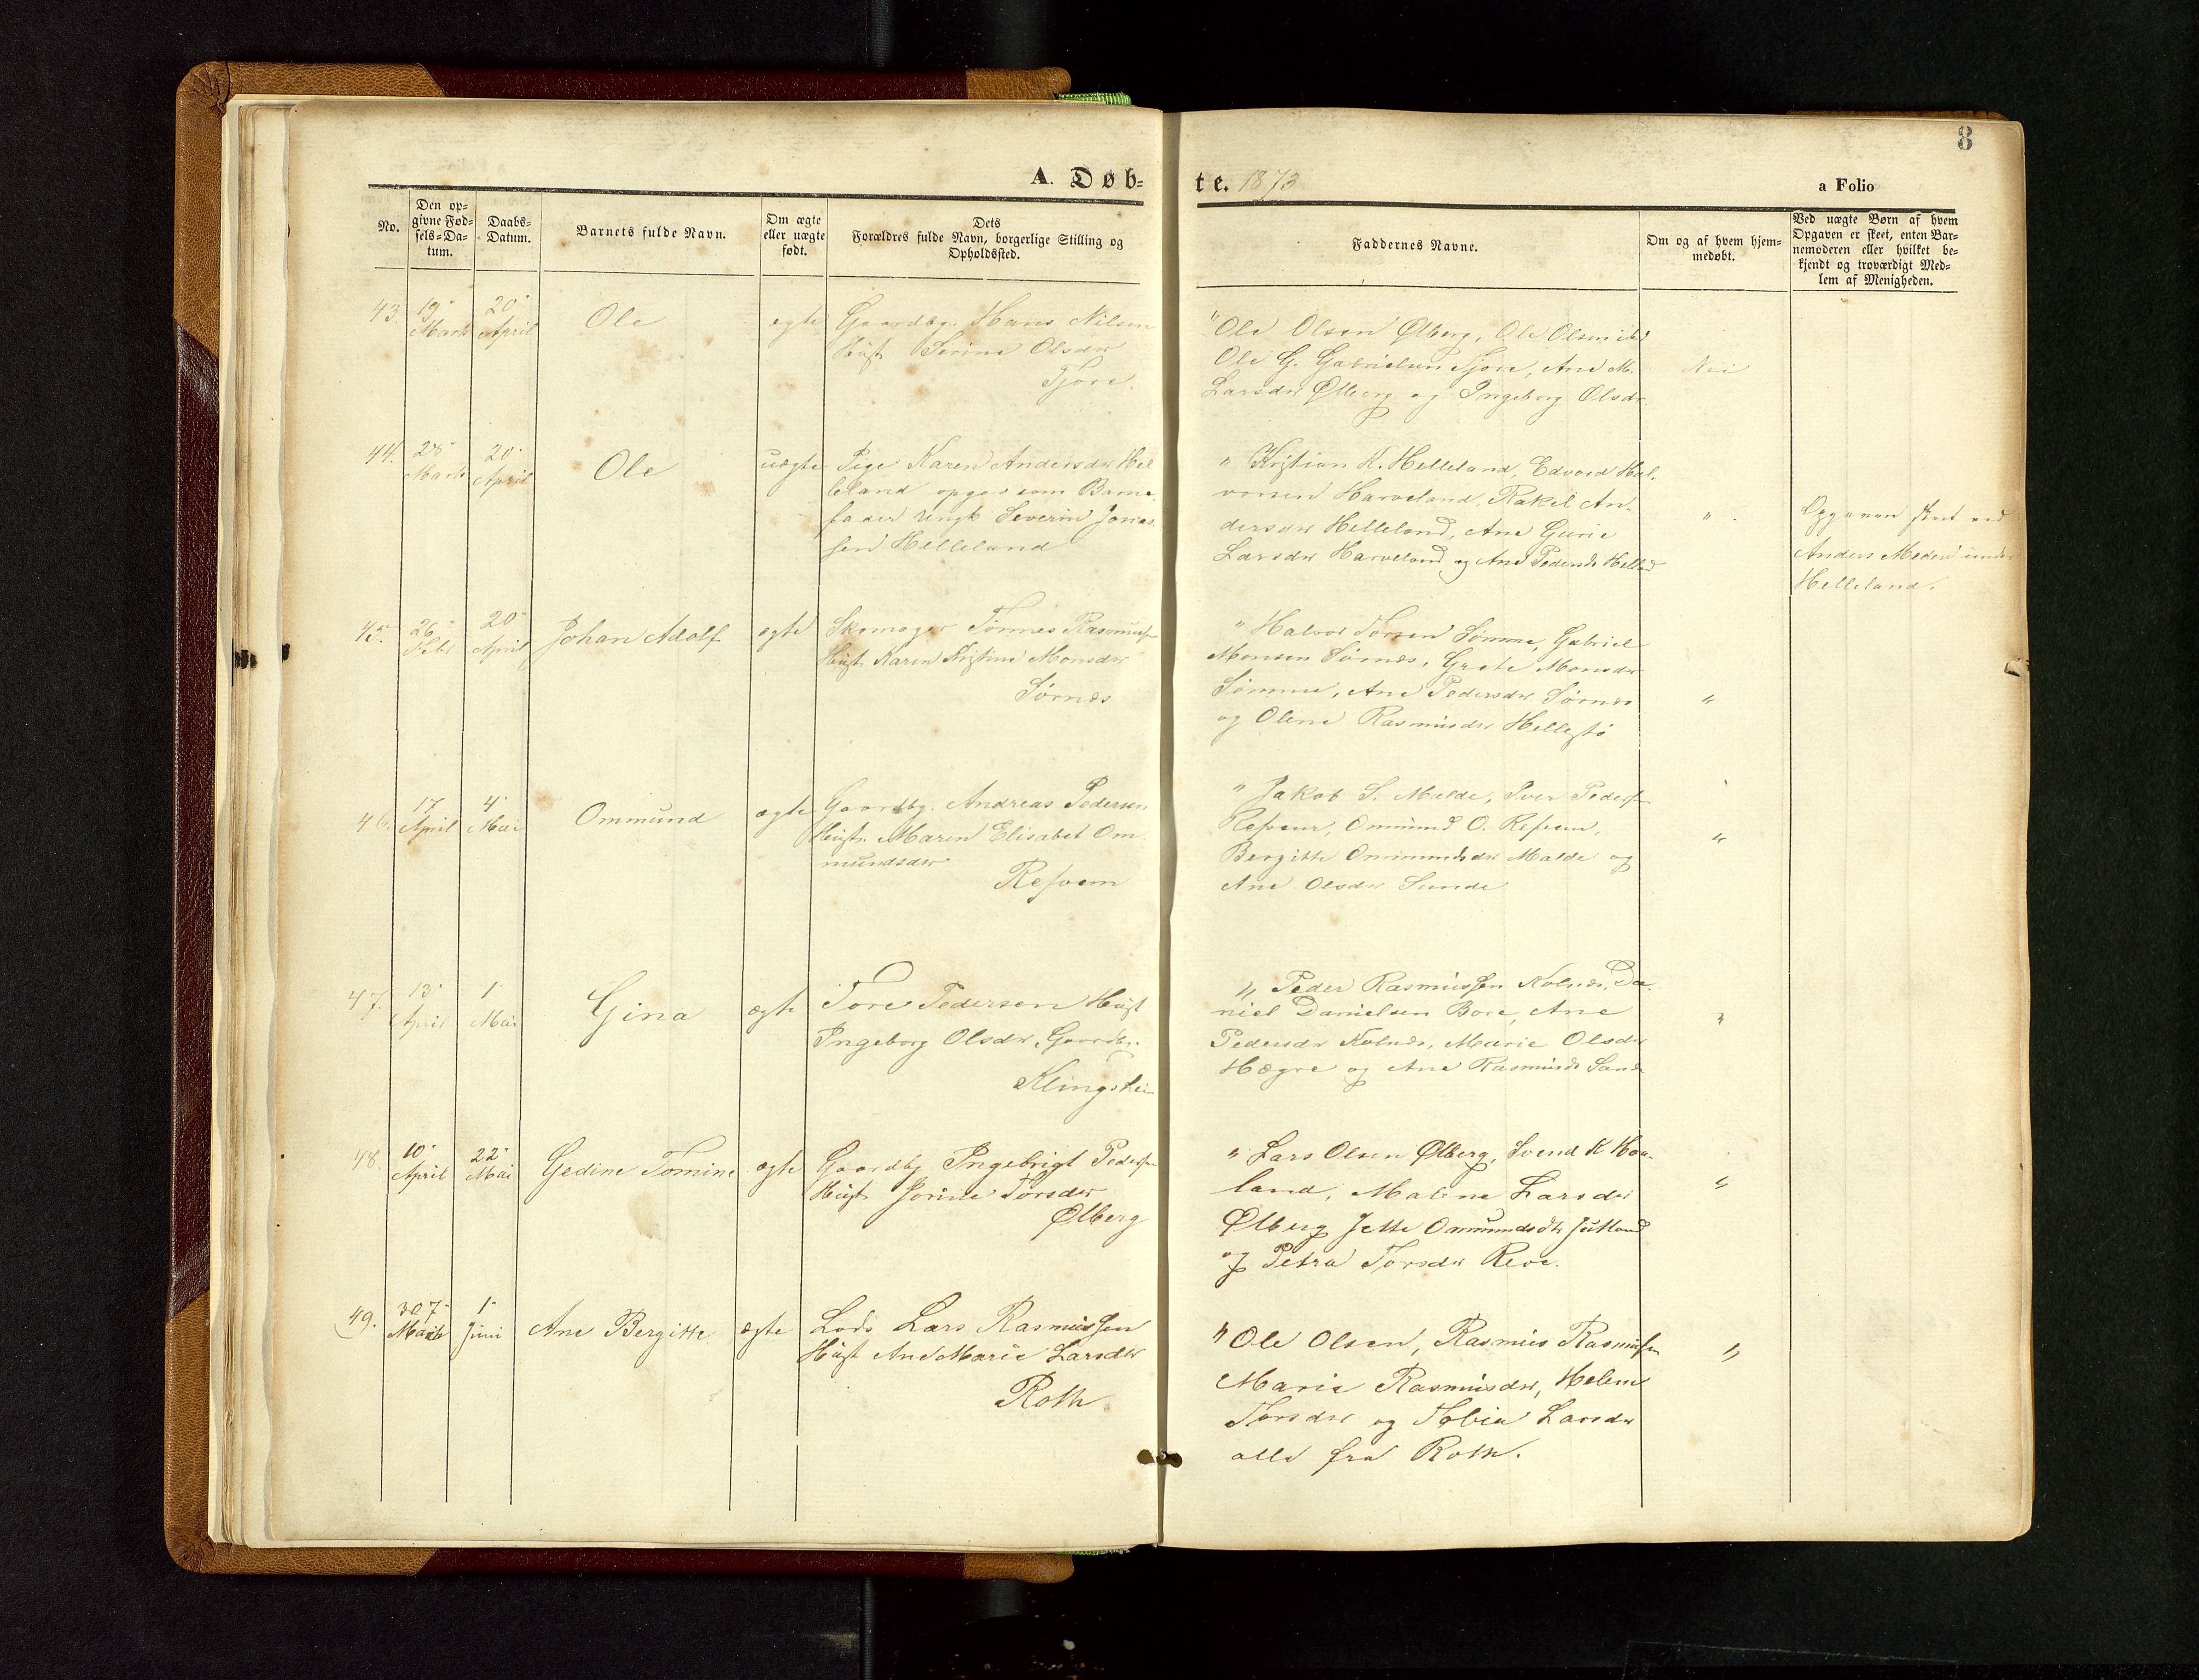 8
A. Døb=
te. 1873
a Folio
No.
Den op=
givne Fød=
sels=Da=
tum.
Daabs=
Datum.
Barnets fulde Navn.
Om ægte
eller uægte
født.
Dets
Forældres fulde Navn, borgerlige Stilling og
Opholdssted.
Faddernes Navne.
Om og af hvem hjem=
medøbt.
Ved uægte Børn af hvem
Opgaven er skeet, enten Bar=
nemoderen eller hvilket be=
kjendt og troværdigt Med=
lem af Menigheden.
43.
19
Marts
20
April
Ole
ægte
Gaardbr. Hans Nilsen
Hust Serine Olsdtr
Tjore.
" Ole Olsen Ølberg, Ole Olsen ibd
Ole G. Gabrielsen Tjore, Ane M.
Larsdtr Ølberg og Ingeborg Olsdtr.
Nei
44.
28
Marts
20
April
Ole
uægte
Pige Karen Andersdtr Hel
leland opgav som Barne
fader Ungk Severin Jonas
sen Helleland
" Kristian K. Helleland, Edvard Hal-
vorsen Harveland, Rakel An-
dersdtr Helleland, Ane Gurie
Larsdtr Harveland og Ane Pedersdtr Helleland
"
Opgaven skeet ved
Anders under
Helleland.
45.
26
Febr
20
April
Johan Adolf
ægte
Skomager Tønnes Rasmussen
Hust. Karen Kristine Monsdtr
Sørnes
" Halvor Torsen Sømme, Gabriel
Monsen Sørnes, Grete Monsdtr
Sømme, Ane Pedersdtr Sørnes
og Oline Rasmusdtr Hellestø
"
46.
17
April
4
Mai
Ommund
ægte
Gaardbr. Andreas Pedersen
Hustr. Maren Elisabet Om
mundsdtr
Refsem
" Jakob S. Malde, Iver Pedersen
Ommund O.
Bergitte Ommundsdtr Malde og
Ane Olsdtr Sunde
"
47.
13
April
1
Mai
Gina
ægte
Tore Pedersen Hust
Ingeborg Olsdtr, Gaardbr.
Klingshei
" Peder Rasmussen Kolnes, Da-
niel Danielsen Bore, Ane
Pedersdtr Kolnes, Marie Olsdtr
Hægre og Ane Rasmusdtr Sande
"
48.
10
April
22
Mai
Gedine Tomine
ægte
Gaardbr Ingebrigt Pedersen
Hust Jorine Torsdtr
Ølberg
" Lars Olsen Ølberg, Svend K Hou-
land, Malene Larsdtr
Ølberg Jette Ommundsdtr Jutland
og Petra Torsdtr Reve.
"
49.
30
Marts
1
Juni
Ane Bergitte
ægte
Lods Lars Rasmussen
Hust Ane Marie Larsdtr
Roth
" Ole Olsen, Rasmus Rasmussen
Marie Rasmusdtr, Helene
Torsdtr og Tobia Larsdtr
alle fra Roth.
"